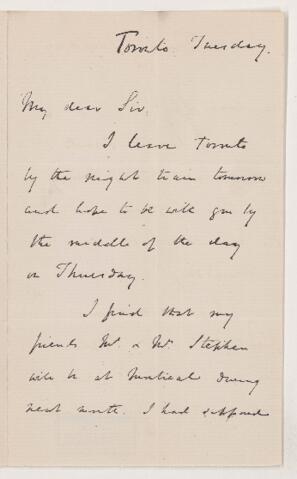 Toronto Tuesday.
My dear Sir,
I leave Toronto
by the night train tomorrow
and hope to be with you by
the middle of the day
on Thursday.
I find that my
friends Mr. & Mrs. Stephen
will be at Montreal during
next month. I had supposed